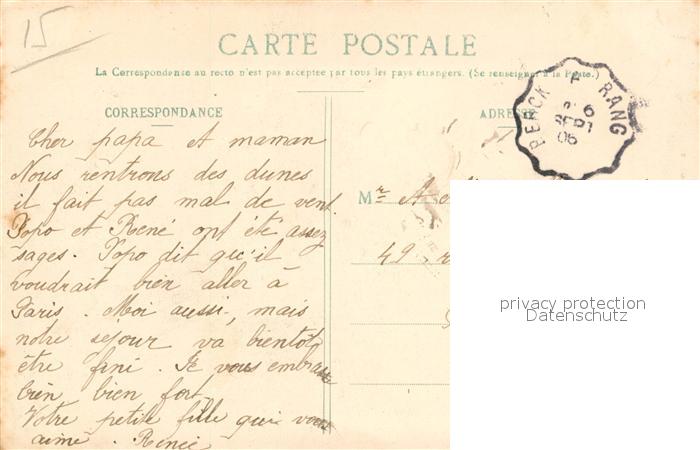 15
CARTE POSTALE
La Correspondance au recto n'est pas acceptée par tous les pays étrangers. (Se renseigner à la Poste.)
CORRESPONDANCE
Cher papa et maman
Nous rentrons des dunes
il fait pas mal de vent.
Popo et René ont été assez
sages. Popo dit qu'il
voudrait bien aller à
Paris. Moi aussi, mais
notre séjour va bientôt
être fini. Je vous embrasse
bien bien fort.
Votre petite fille qui vous
aime. Renée
ADRESSE
RANG
6
SEPT
06
Mr
49
privacy protection
Datenschutz